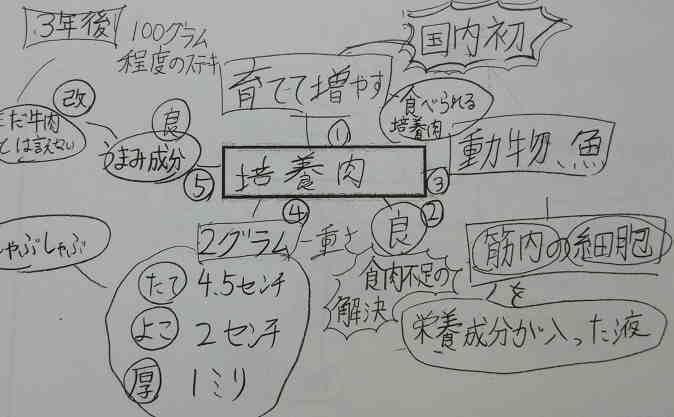 3年後
100グラム
程度のステキ
国内初
育てて増やす
食べられる
培養肉
改
だ牛肉
は言えない
良
うまみ成分
①
培養肉
⑤
③
動物、魚
④
②
2グラム
重さ
良
食肉不足の
解決
筋肉の細胞
を
栄養成分が入った液
ゃぶしゃぶ
たて 4.5センチ
よこ 2センチ
厚 1ミリ